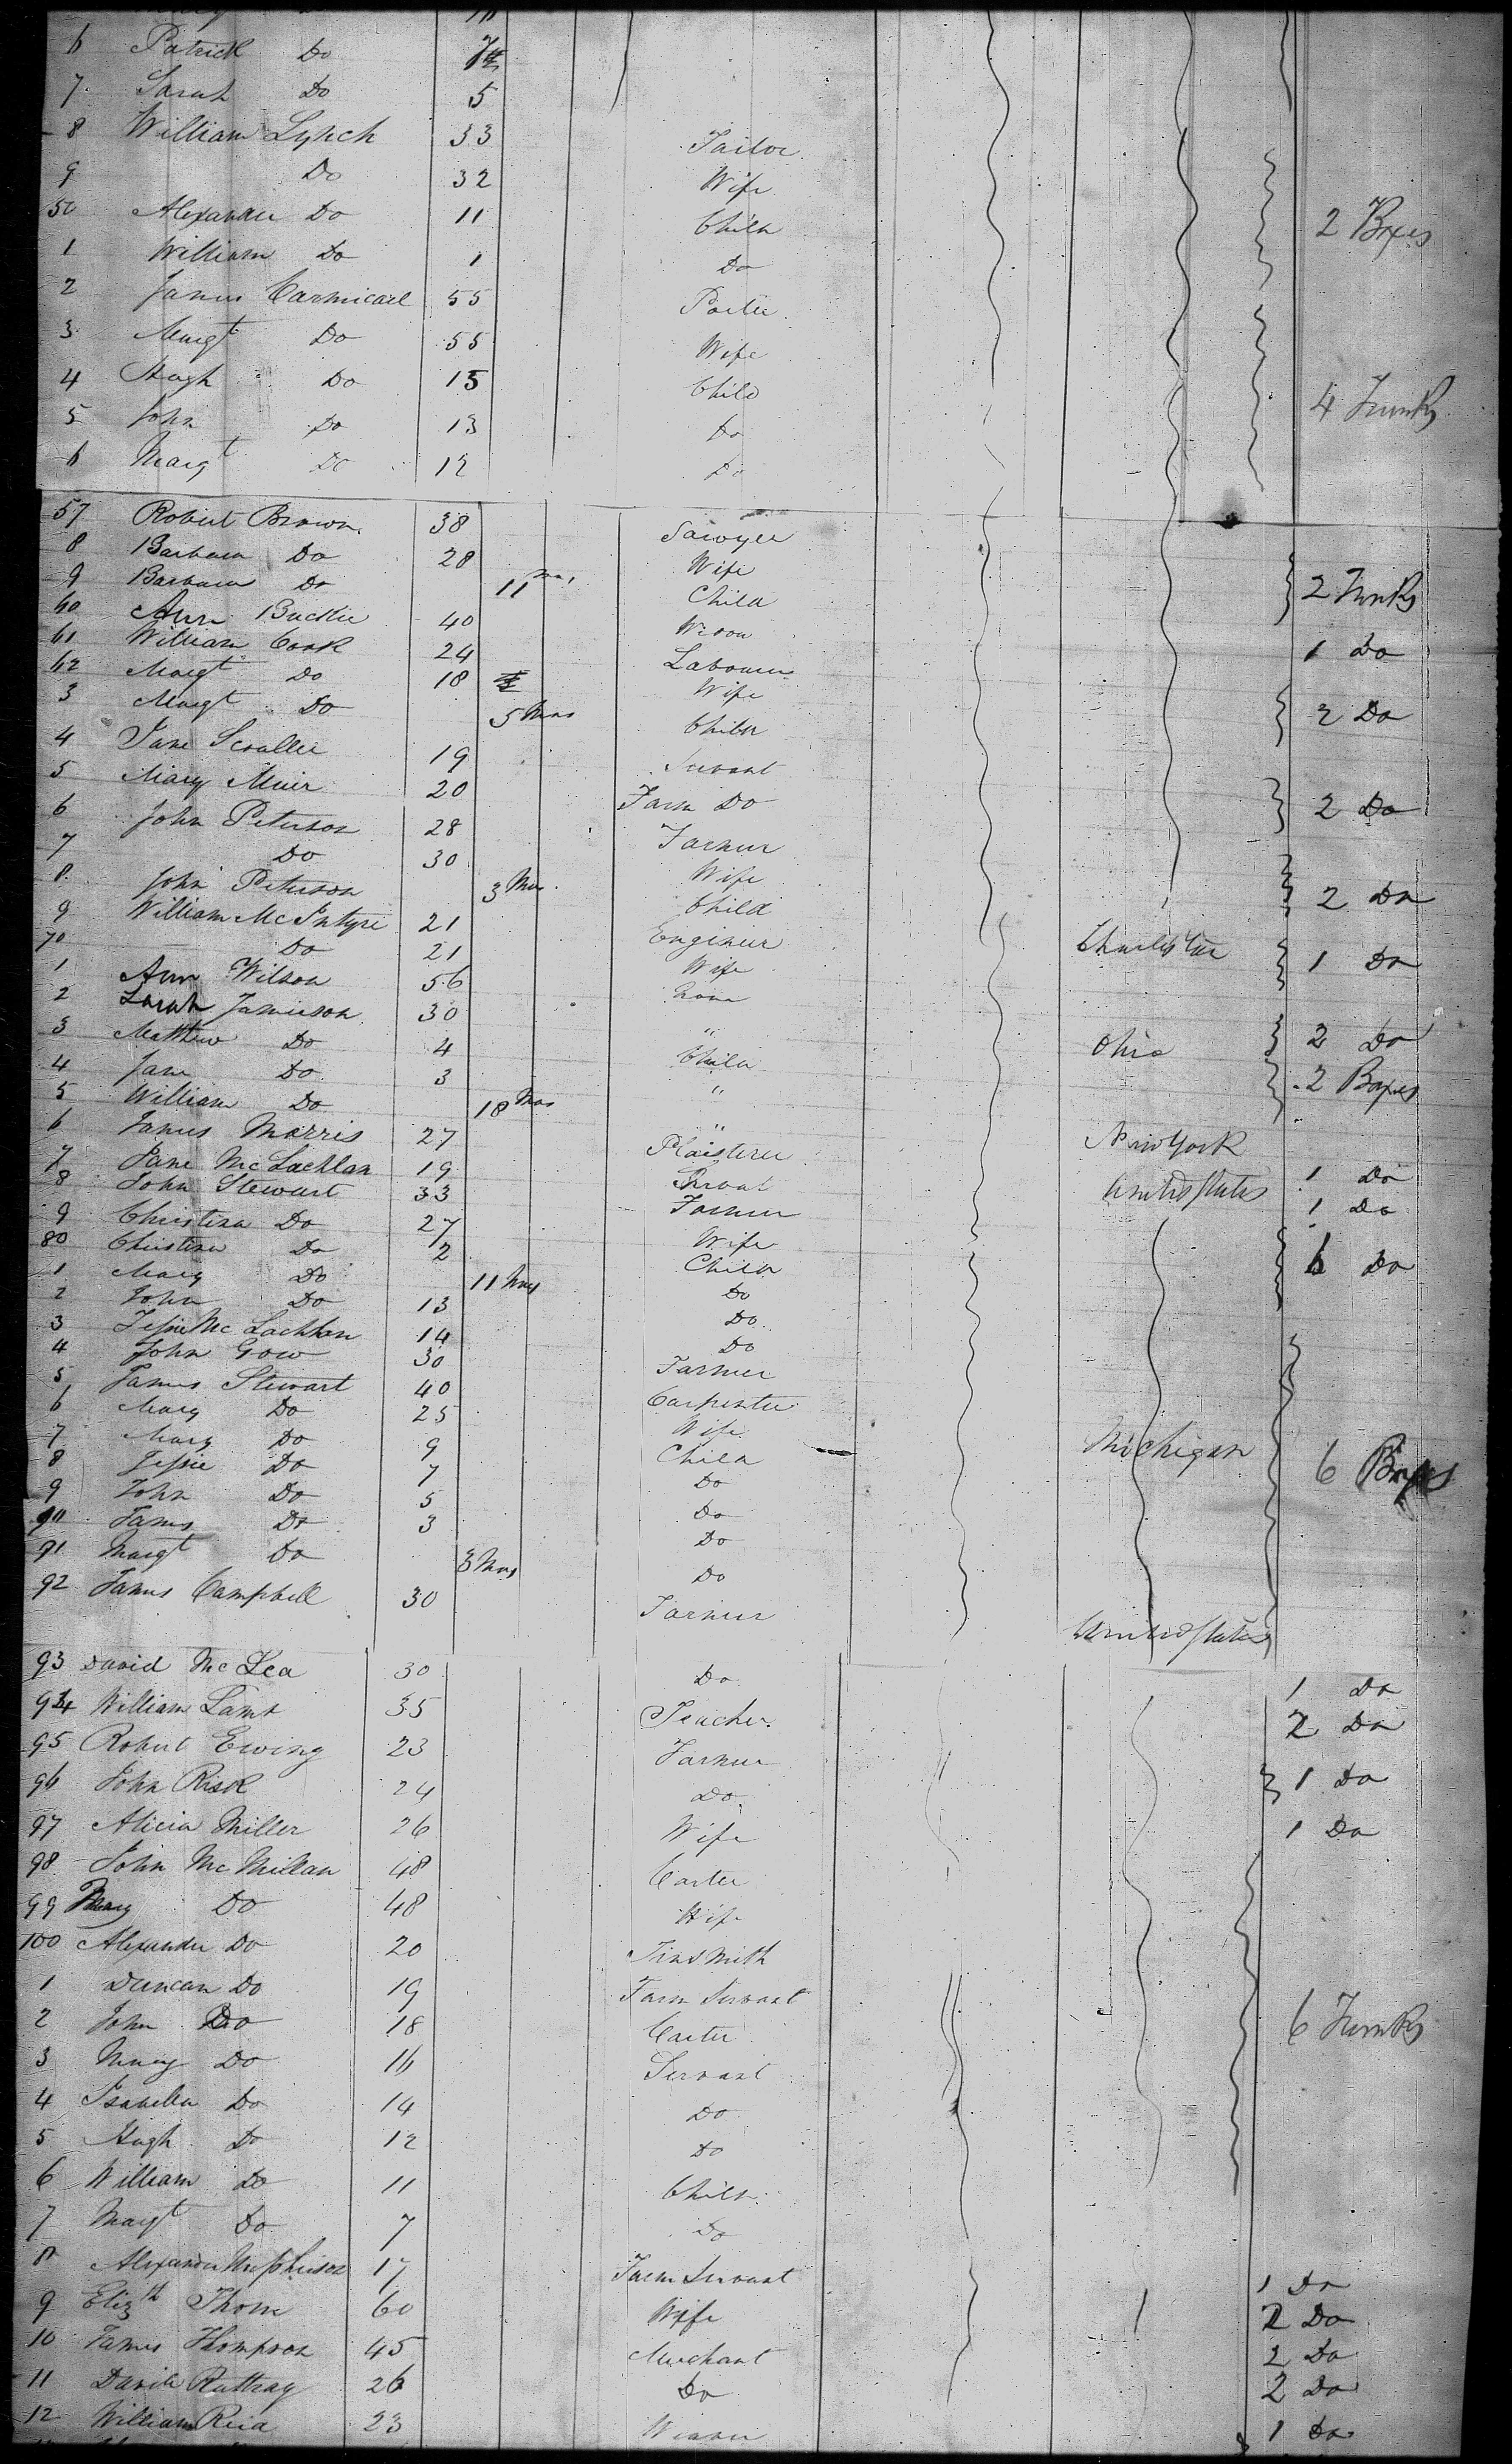 6 Patrick Do
7 Sarah Do 5
8 William Lynch 33 Tailor
9 Do 32 Wife
50 Alexander Do 11 Child 2 Boxes
1 William Do 1 Do
2 James Carmicael 55 Porter
3 Margt Do 55 Wife
4 Hugh Do 15 Child 4 Trunks
5 John Do 13 Do
6 Margt Do 12 Do
57 Robert Brown 38 Sawyer
8 Barbara Do 28 Wife
9 Barbara Do 11 Mos Child 2 Trunks
60 Ann Buckie 40 Widow
61 William Cook 24 Labourer 1 Do
62 Margt Do 18 Wife
3 Margt Do 5 Mos Child 2 Do
4 Jane Scrallie 19 Servant
5 Mary Muir 20 Farm Do 2 Do
6 John Peterson 28 Farmer
7 Do 30 Wife
8 John Peterson 3 Mos Child 2 Do
9 William McIntyre 21 Engineer Charleston
70 Do 21 Wife 1 Do
1 Ann Wilson 56
2 Sarah Jamieson 30 "
3 Matthew Do 4 Child Ohio 2 Do
4 Jane Do 3 " 2 Boxes
5 William Do 18 Mos "
6 James Morris 27 Plaisterer New York
7 Jane McLachlan 19 Servant United States 1 Do
8 John Stewart 33 Farmer 1 Do
9 Christina Do 27 Wife
80 Christina Do 2 Child 6 Do
1 Mary Do 11 Mos Do
2 John Do 13 Do
3 Jessie McLachlan 14 Do
4 John Gow 30 Farmer
5 James Stewart 40 Carpenter
6 Mary Do 25 Wife
7 Mary Do 9 Child Michigan
8 Jessie Do 7 Do 6 Boxes
9 John Do 5 Do
90 James Do 3 Do
91 Margt Do 3 Mos Do
92 James Campbell 30 Farmer United States
93 David McLea 30 Do 1 Do
94 William Lamb 35 Teacher 2 Do
95 Robert Ewing 23 Farmer
96 John Risk 24 Do 1 Do
97 Alicia Miller 26 Wife 1 Do
98 John McMillan 48 Carter
99 Mary Do 48 Wife
100 Alexander Do 20 Tinsmith
1 Duncan Do 19 Farm Servant
2 John Do 18 Carter 6 Trunks
3 Do 16 Servant
4 Isabella Do 14 Do
5 Hugh Do 12 Do
6 William Do 11 Child
7 Margt Do 7 Do
8 Alexander McPherson 17 Farm Servant 1 Do
9 Elizth Thom 60 Wife 2 Do
10 James Thompson 45 Merchant 2 Do
11 David Rattray 26 Do 2 Do
12 William Reid 23 Weaver 1 Do